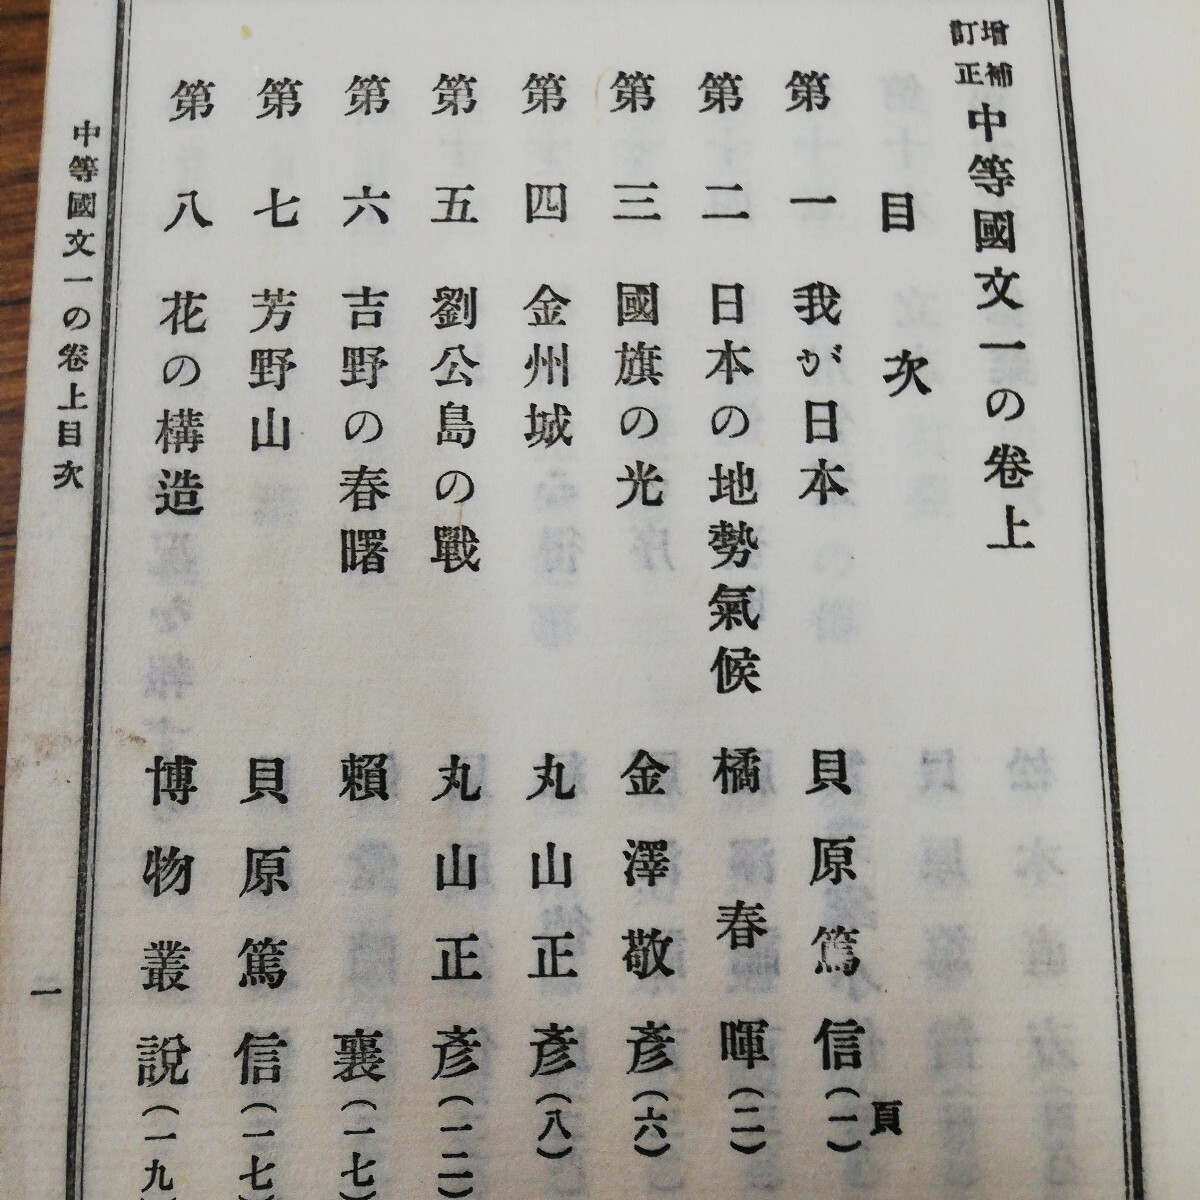 增補訂正 中等國文一の卷上
目次
頁
第一 我が日本 貝原篤信(一)
第二 日本の地勢氣候 橘春暉(二)
第三 國旗の光 金澤敬彥(六)
第四 金州城 丸山正彥(八)
第五 劉公島の戰 丸山正彥(一二)
第六 吉野の春曙 賴襄(一七)
第七 芳野山 貝原篤信(一七)
第八 花の構造 博物叢說(一九)
中等國文一の卷上目次
一